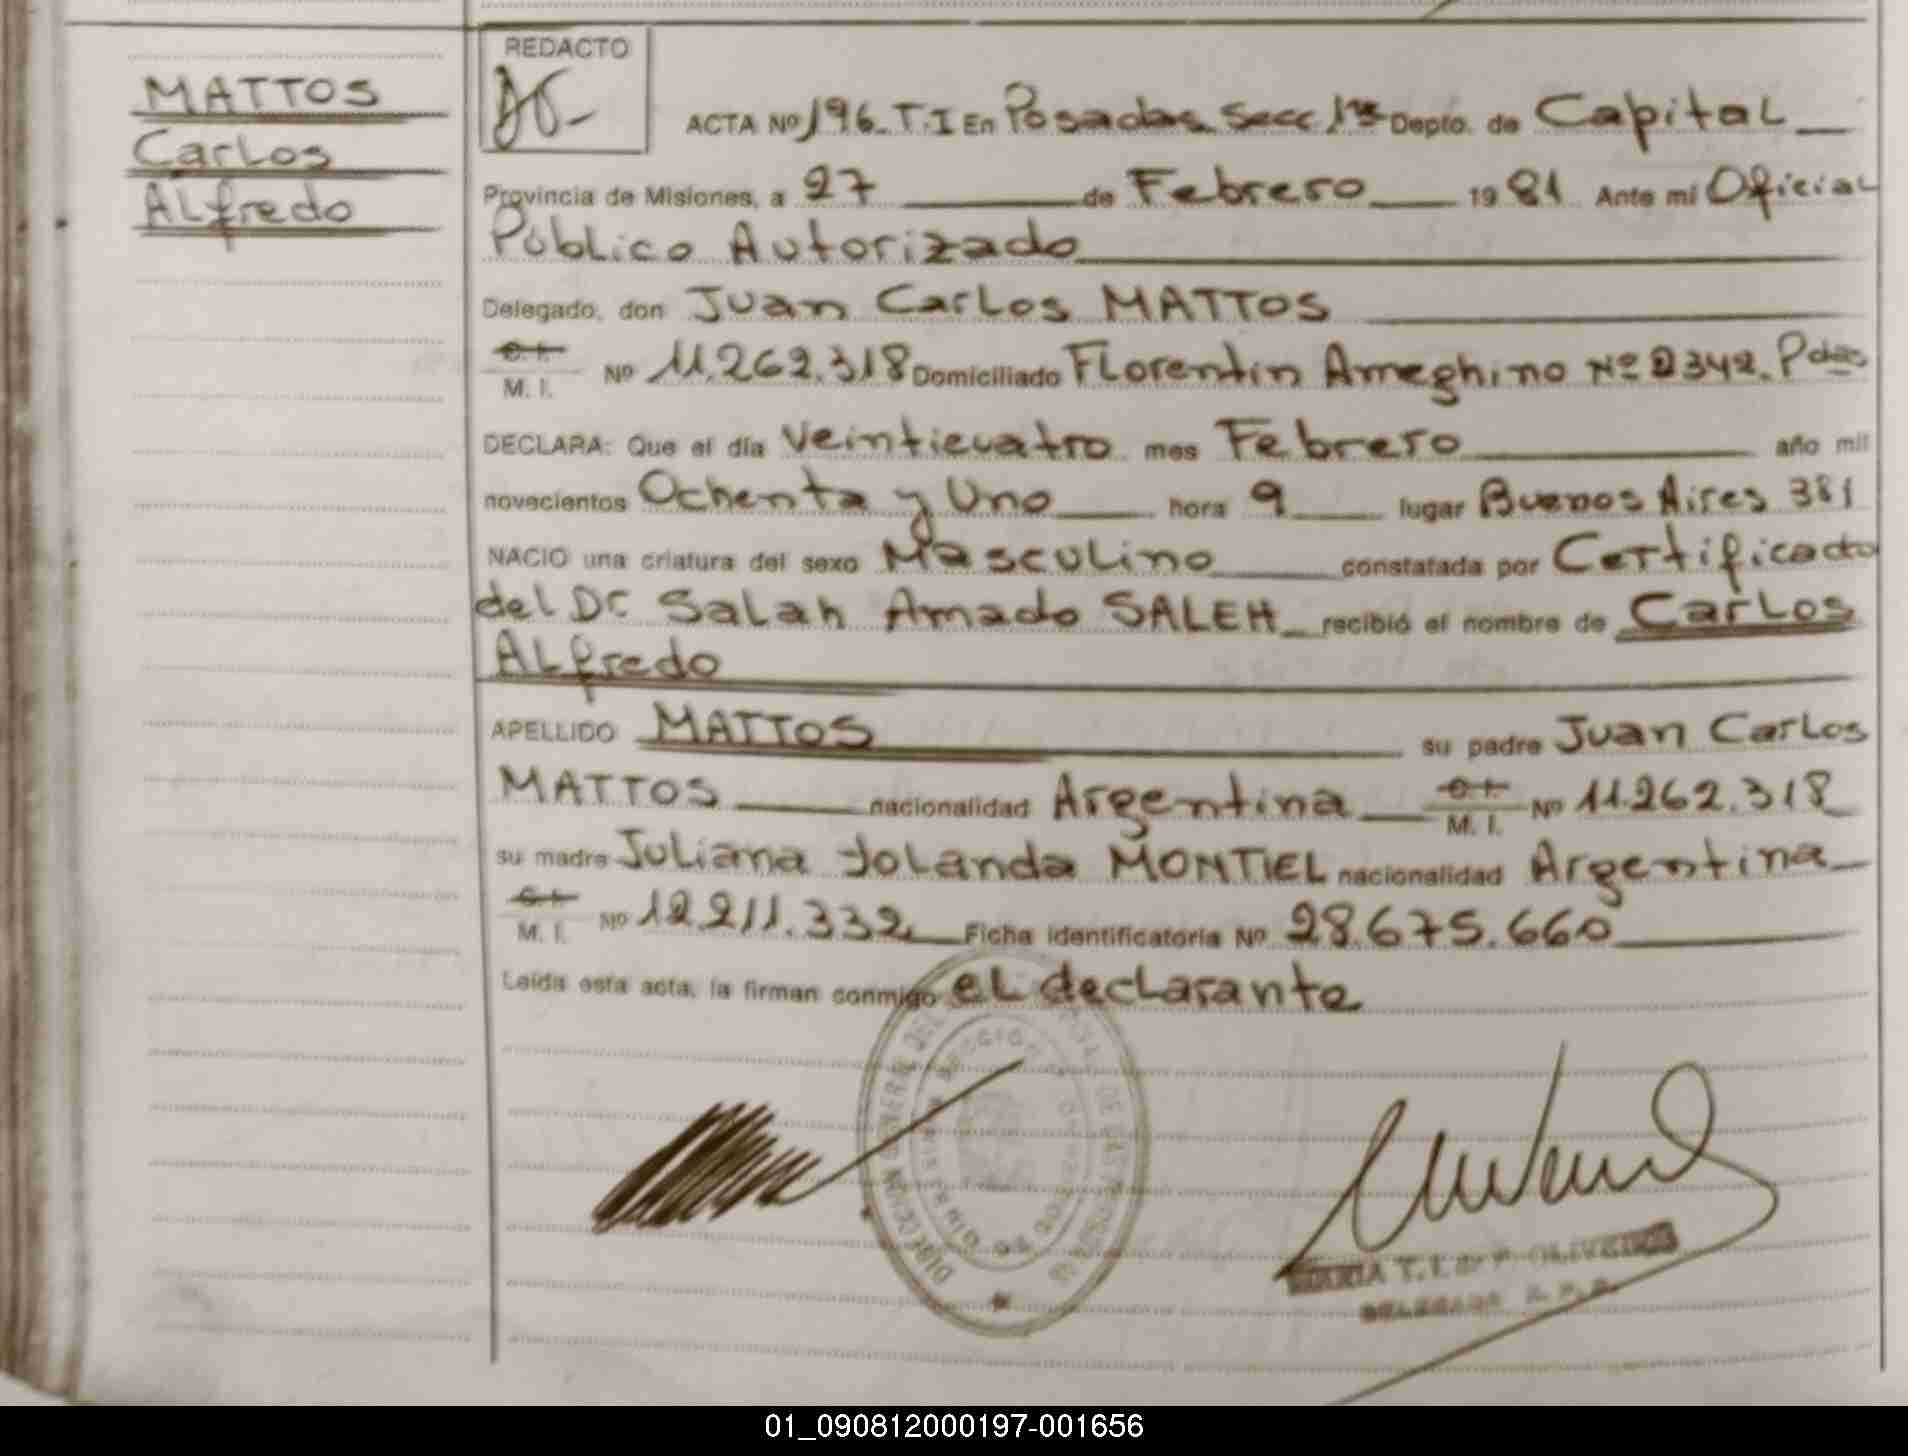 MATTOS
Carlos
Alfredo
REDACTO
ACTA Nº 196. T.I En Posadas Secc 1ra Depto. de Capital
Provincia de Misiones, a 27 de Febrero 1981 Ante mí Oficial
Público Autorizado
Delegado, don Juan Carlos MATTOS
C.I.
M. I. Nº 11.262.318 Domiciliado Florentin Ameghino Nº 2342. Pdas
DECLARA: Que el día Veinticuatro mes Febrero año mil
novecientos Ochenta y Uno hora 9 lugar Buenos Aires 381
NACIO una criatura del sexo Masculino constatada por Certificado
del Dr Salah Amado SALEH recibió el nombre de Carlos
Alfredo
APELLIDO MATTOS su padre Juan Carlos
MATTOS nacionalidad Argentina C.I.
M. I. Nº 11.262.318
su madre Juliana Yolanda MONTIEL nacionalidad Argentina
C.I.
M. I. Nº 12.211.332 Ficha identificatoria Nº 28.675.660
Leída esta acta, la firman conmigo el declarante
MARIA T. I. de P. OLIVEIRA
DELEGADA
01_090812000197-001656